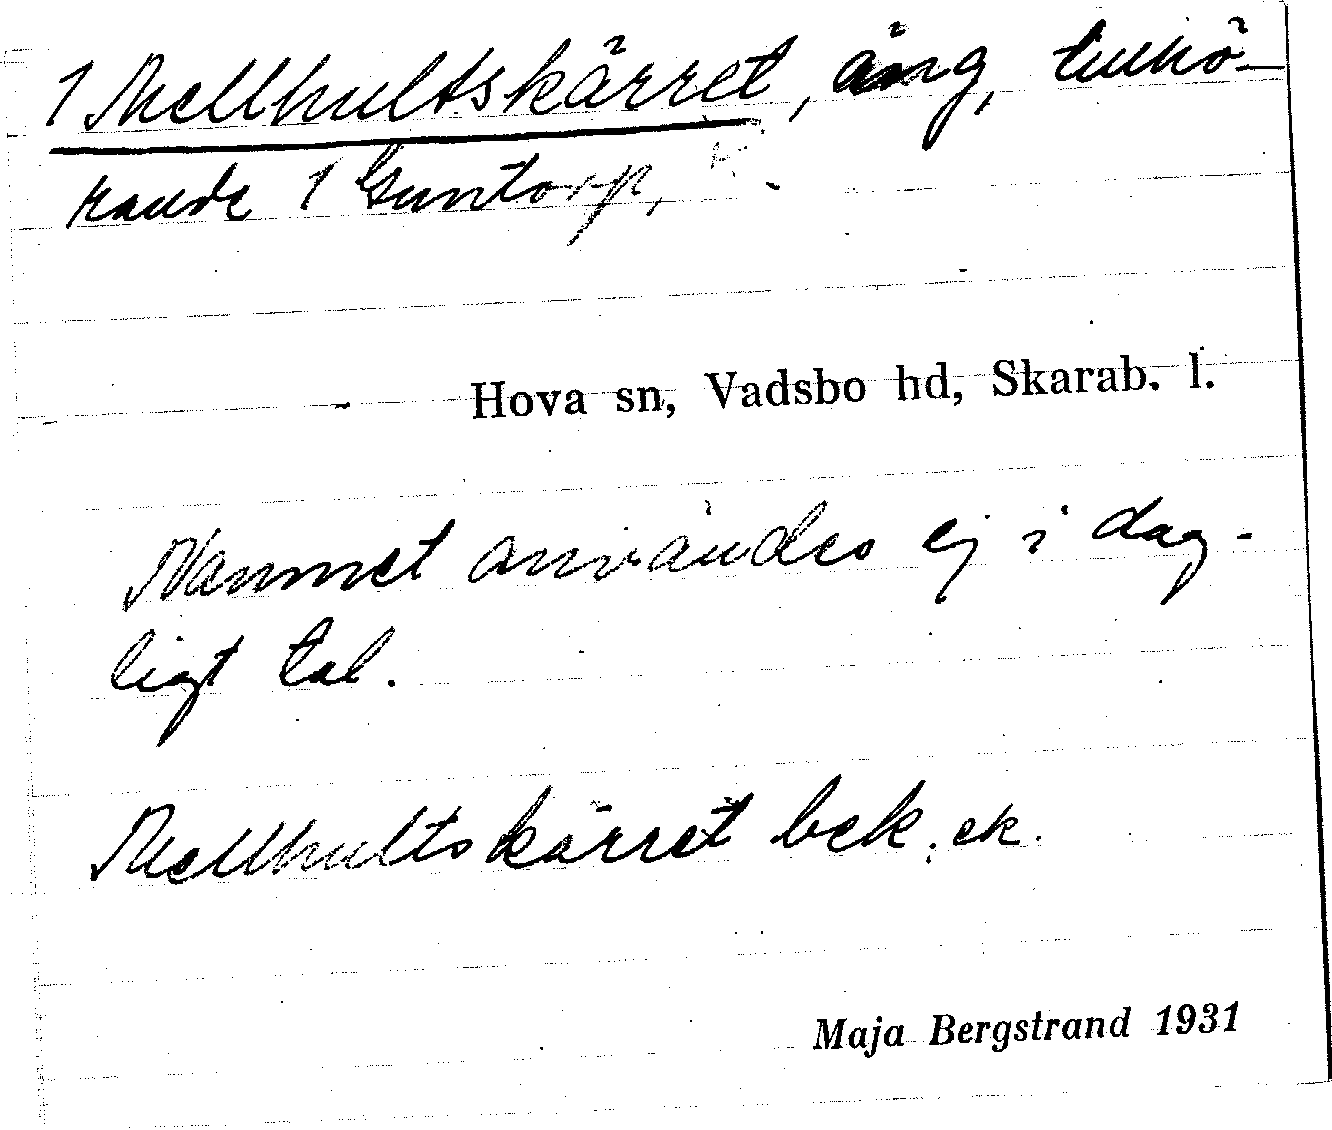 1 Mellhultskärret, äng, tillhö-
rande 1 Guntorp,
Hova sn, Vadsbo hd, Skarab. l.
Namnet användes ej i dag-
ligt tal.
Mellhultskärret bek. ek.
Maja Bergstrand 1931